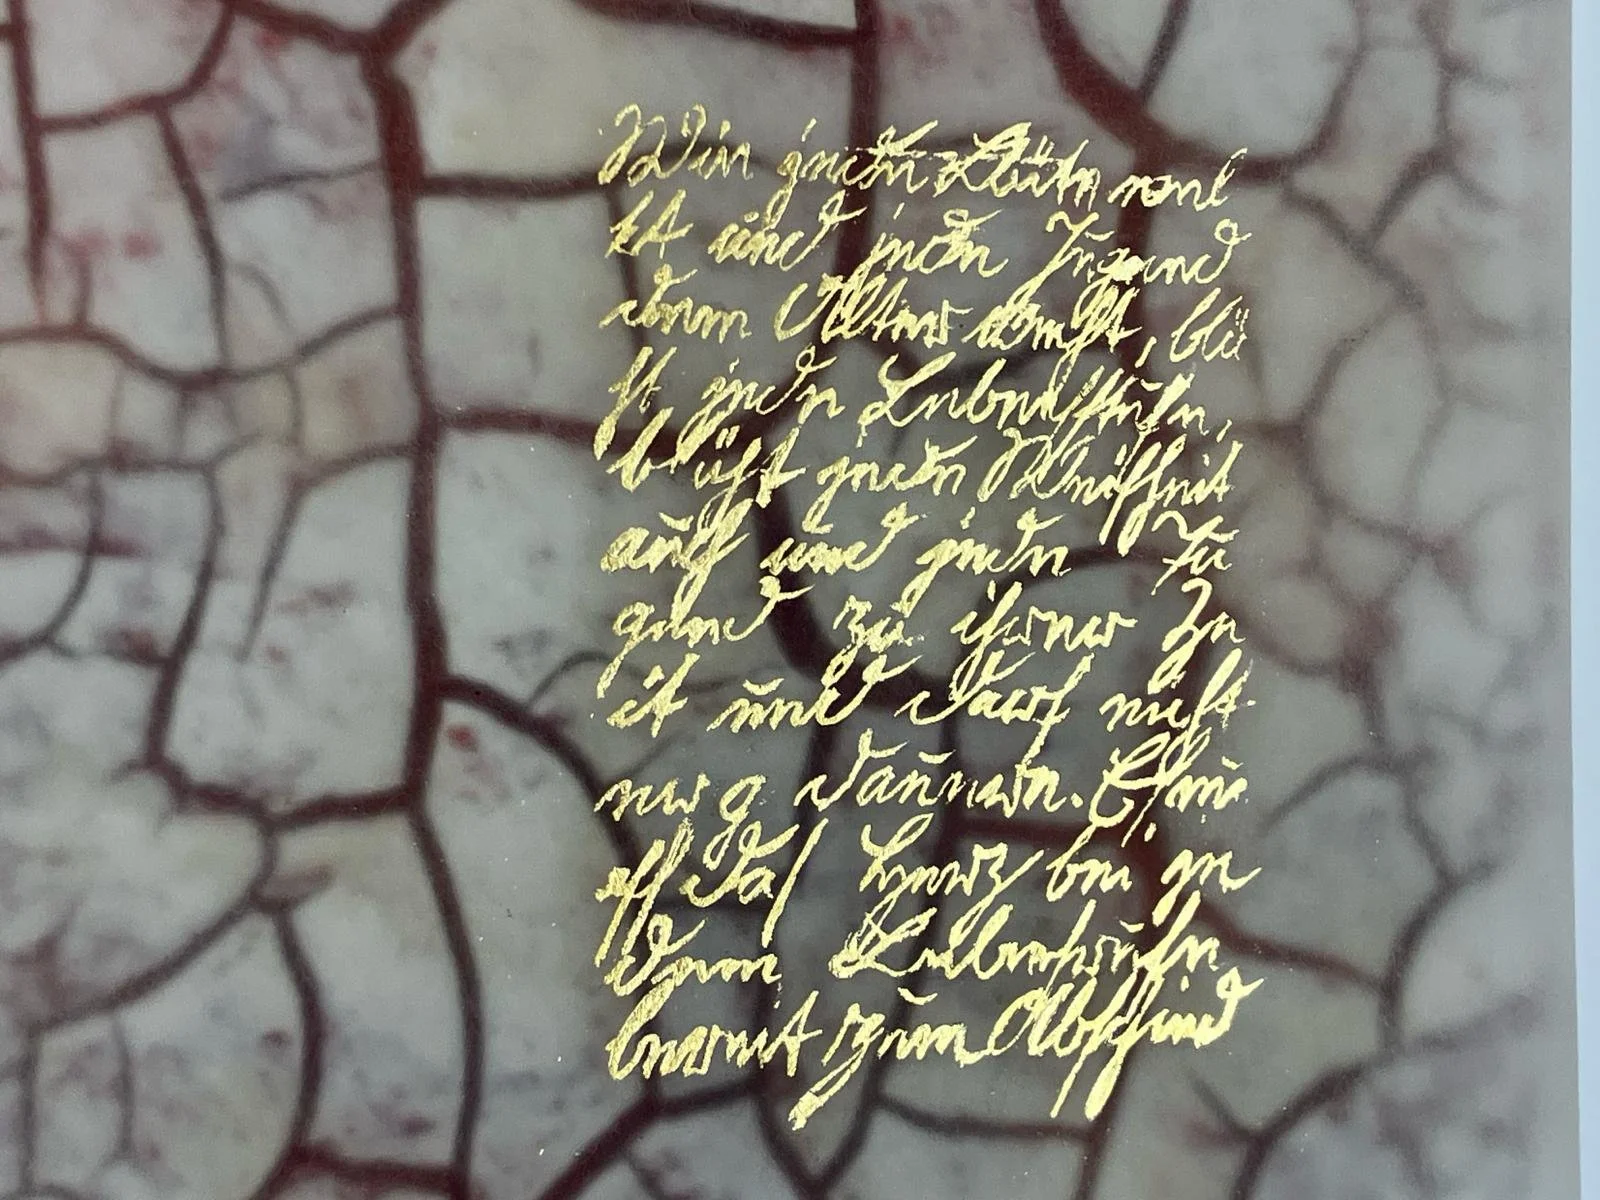 Wie jede Blüte wel
kt und jede Jugend
dem Alter weicht, blü
ht jede Lebensstufe,
blüht jede Weisheit
auch und jede Tu
gend zu ihrer Ze
it und darf nicht
ewig dauern. Es mu
ß das Herz bei je
dem Lebensrufe
bereit zum Abschied